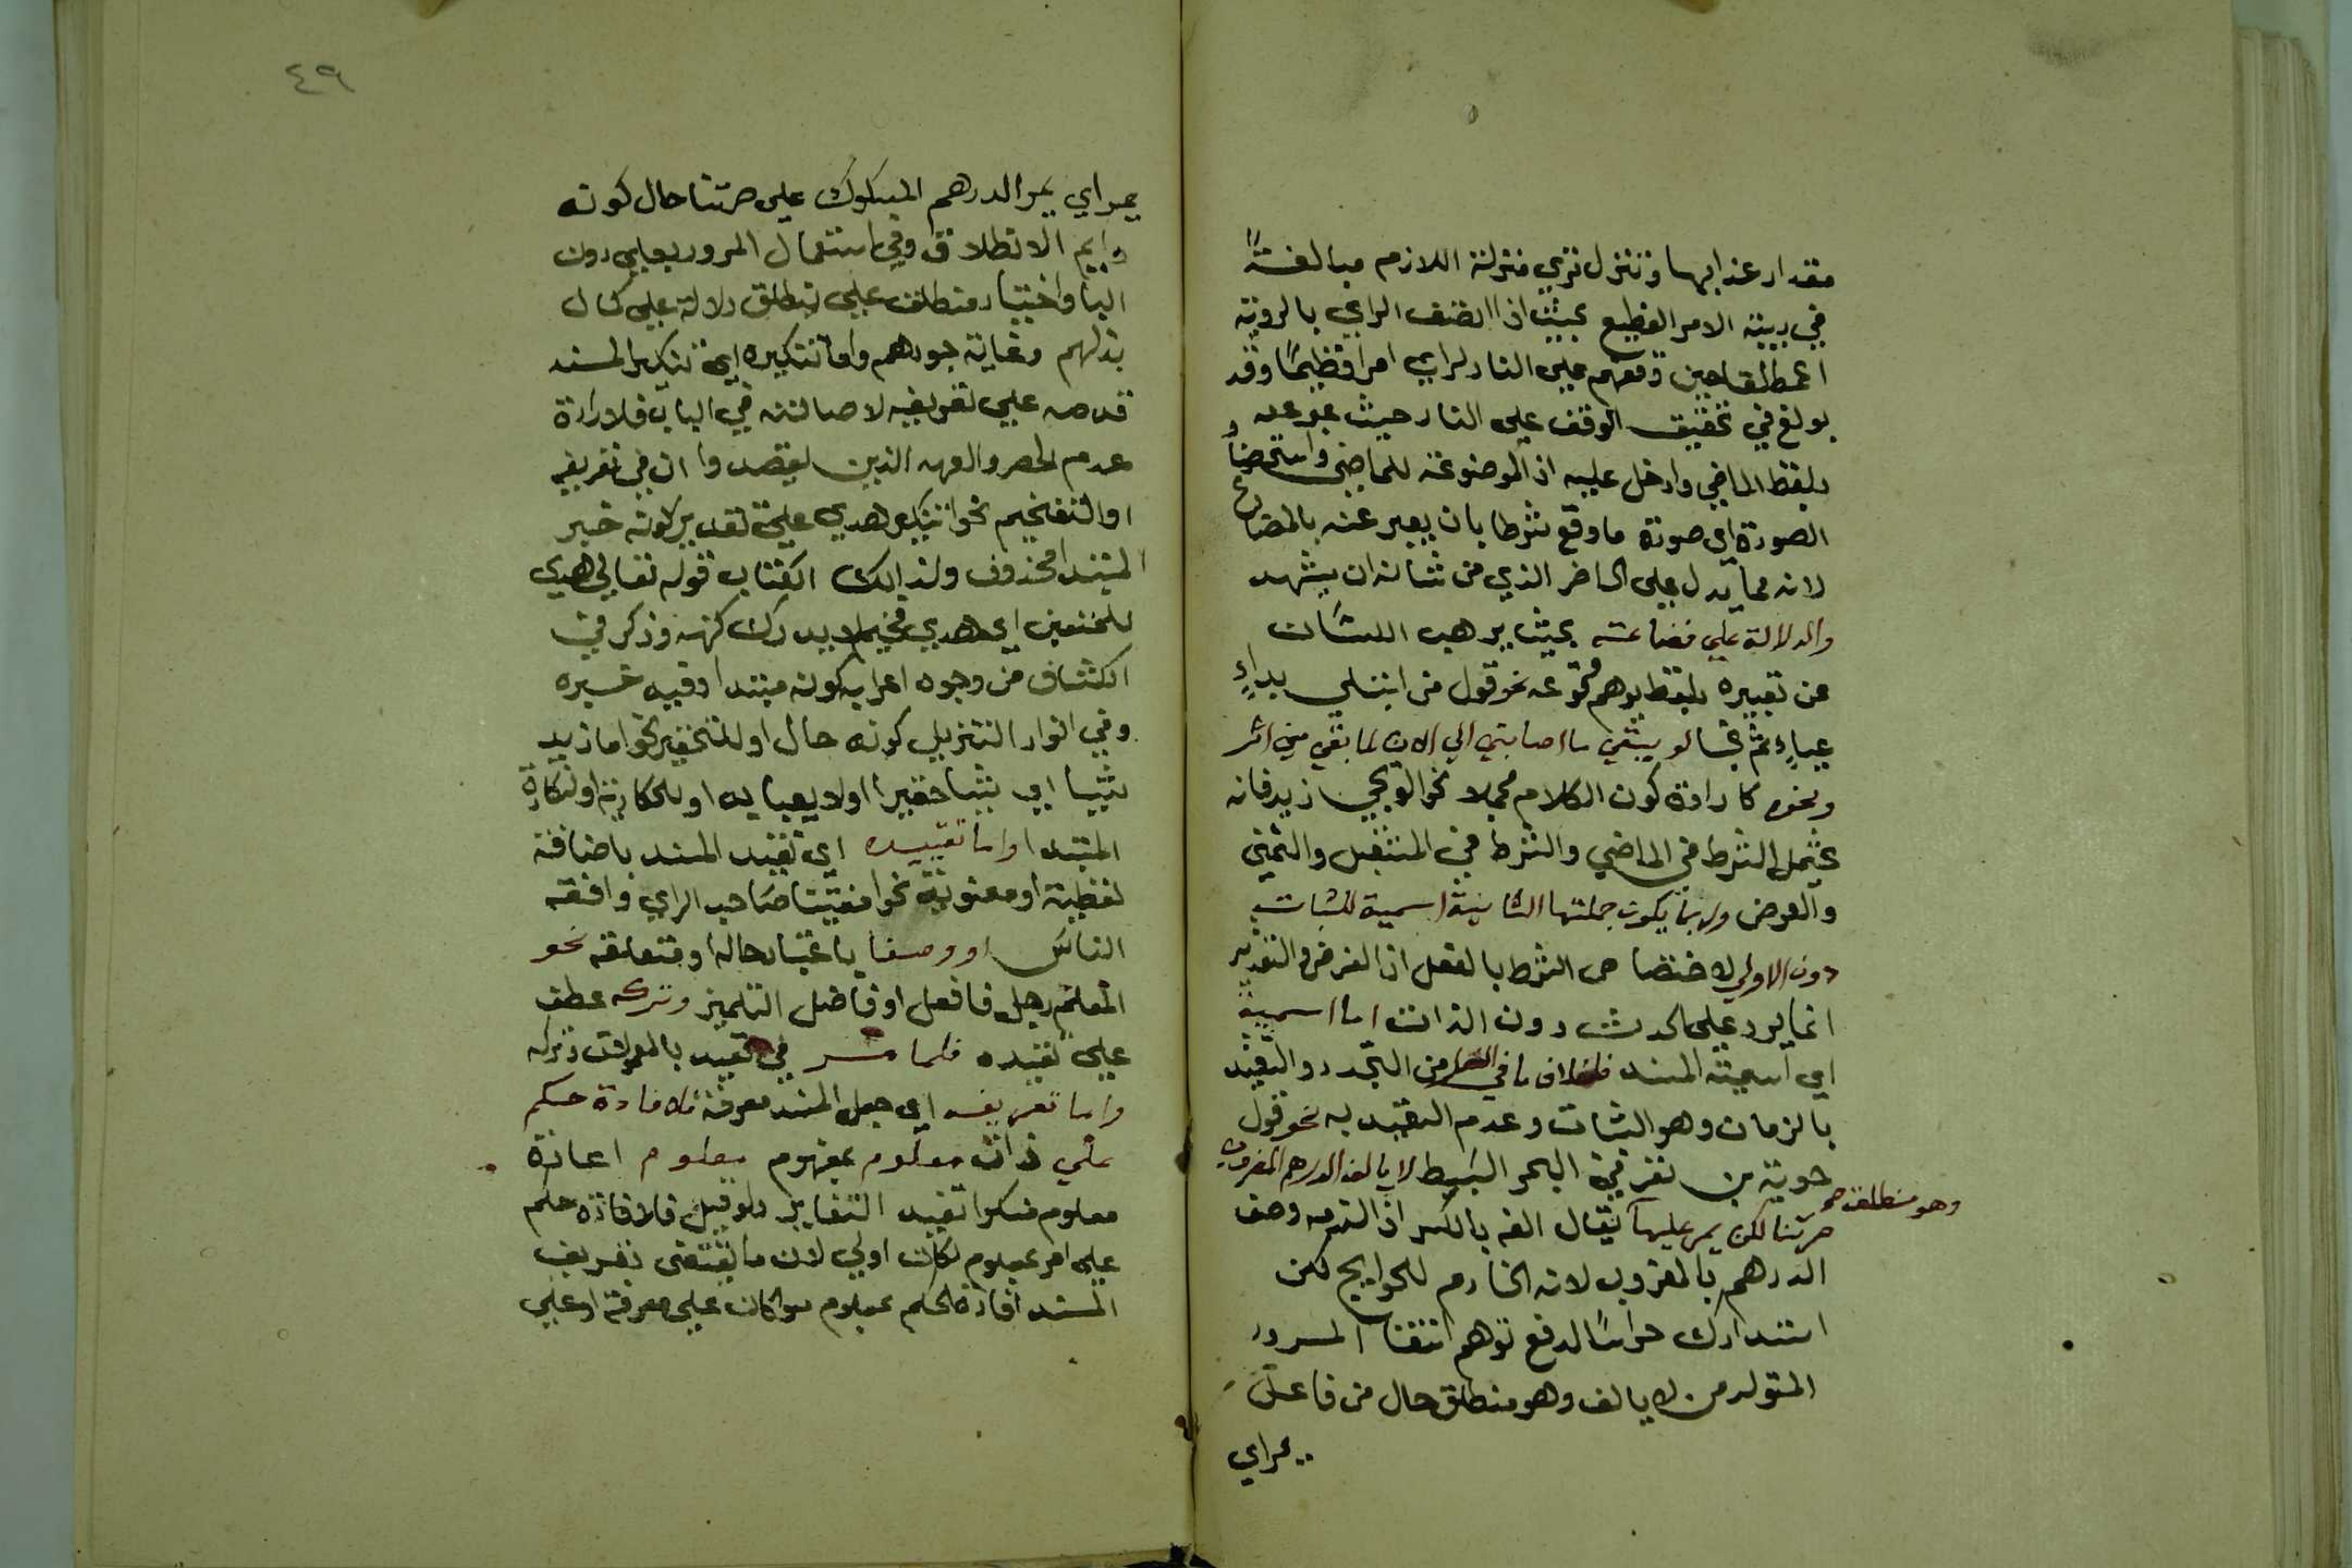 مقدار عذابها وتنزل ترى منزلة اللازم مبالغة
في رتبة الامر الفظيع بحيث اذا اتصف الراى بالروية
وقفهم على النار لراى امرا فظيعا وقد
بولغ في تحقيق الوقف على النار حيث عبر عنه
بلفظ الماضي وادخل عليه اذ الموضوعة للماضى واستحضار
الصورة اى صورة ما وقع شرطا بان يعبر عنه بالمضارع
لانه مما يدل على الحاضر الذي من شانه ان يشهد
والدلالة على فضاعته بحيث يرهب اللسان
عن تعبيره بلفظ يوهم وقوعه نحو قول من ابتلي بداءٍ
عياءٍ ثم لو يبقى ما اصابتي الى الان لما بقي مني اثر
ونحوه كارادة كون الكلام محملا نحو لو يجي زيد فانه
يحتمل الشرط في الماضي والشرط في المستقبل والتمني
والعرض وربما يكون جملتها الثانية اسمية للثبات
دون الاولى لاختصاص الشرط بالفعل اذ الفرض والتقدير
انما يرد على الحدث دون الذات اما اسميته
اى اسمية المسند فلخلاف ما في الفعل من التجدد والتقييد
بالزمان وهو الثبات وعدم التقييد به نحو قول
جوية بن نضر في البحر البسيط لا يالف الدرهم المضروب
صرتنا لكن يمر عليها يقال الفه بالكسر اذا لزمه وصف
وهو منطلق صح
الدرهم بالمضروب لانه الخادم للحوايج لكن
استدراك حراسا لدفع توهم انتفا المرور
المتولد من لا يالف وهو منطلق حال من فاعل
يمر اى
٤٩
يمر اى يمر الدرهم المسكوك على صرتنا حال كونه
دايم الانطلاق وفي استعمال المرور بعلى دون
البا واختيار منطلق على ينطلق دلالة على كمال
بذلهم وغاية جودهم واما تنكيره اى تنكير المسند
قدمه على تعريفه لاصالته في الباب فلارادة
عدم الحصر والعهد الذين يقصدوا ان في تعريفه
او التفخيم نحو تنكير هدى على تقدير كونه خبر
المبتدا محذوف ولذلك الكتاب قوله تعالى هدى
للمتقين اى هدى فخيم لا يدرك كنهه وذكر في
الكشاف من وجوه اعرابه كونه مبتدا وفيه خبره
وفي انوار التنزيل كونه حال او للتحقير نحو ما زيد
شيا اى شيا حقيرا اولا يعبا به او للحكارية او نكارة
المبتدا واما تقييده اى تقييد المسند باضافة
لفظية او معنوية نحو صاحب الراي وافقه
الناس او وصفا باعتبار حاله او متعلقه نحو
المعلم رجل فافعل او فاضل التلميذ وتركه عطف
على تقييده فلما مر في تقييد بالمعمولات وتركه
واما تعريفه اى جعل المسند معرفة فلافادة حكم
على ذات معلوم بمفهوم معلوم اعادة
معلوم منكرا تفيد التغاير ولو قيل فلافادة حكم
على امر معلوم لكان اولى لان ما يقتضى تعريف
المسند افادة الحكم بمعلوم سوا كان على معرفة او على